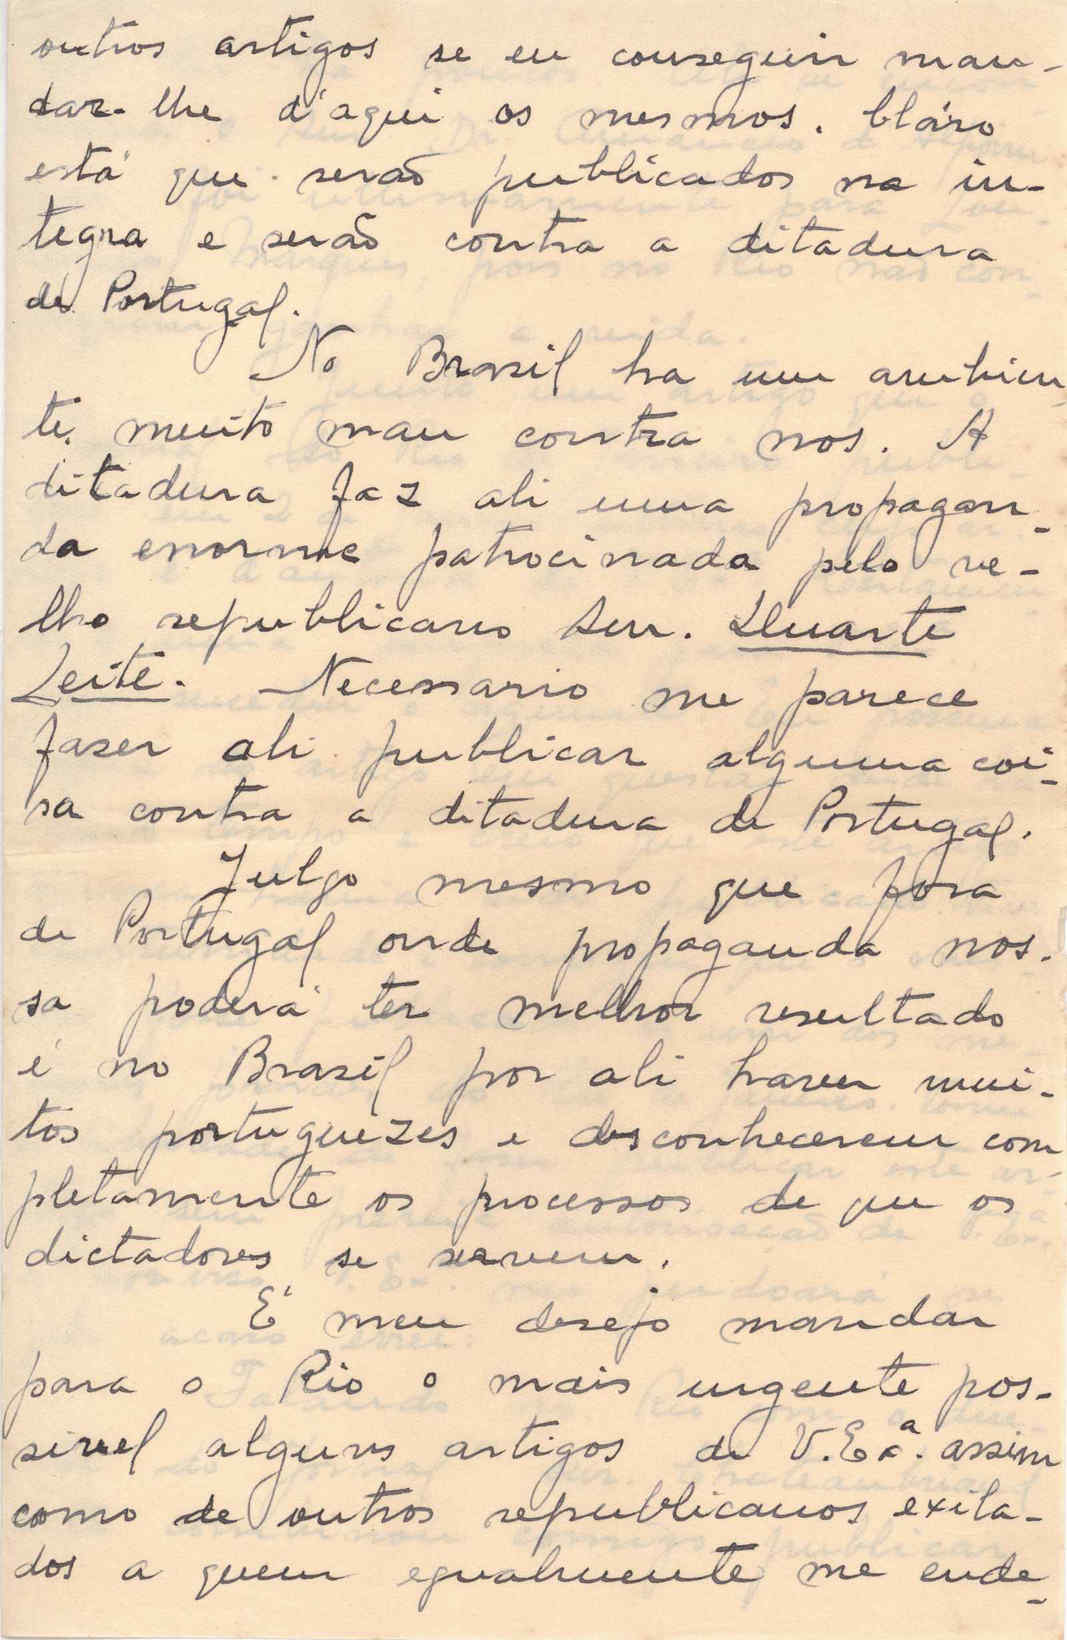 outros artigos se eu conseguir man-
dar-lhe d'aqui os mesmos. Cláro
está que serão publicados na in-
tegra e serão contra a ditadura
de Portugal.
No Brazil ha um ambien-
te muito mau contra nos. A
ditadura faz ali uma propagan-
da enorme patrocinada pelo ve-
lho republicano Snr. Duarte
Leite. Necessario me parece
fazer ali publicar alguma coi-
sa contra a ditadura de Portugal.
Julgo mesmo que fora
de Portugal onde propaganda nos-
sa poderá ter melhor resultado
é no Brazil por ali haver mui-
tos portuguezes e desconhecerem com-
pletamente os processos de que os
dictadores se servem.
E' meu desejo mandar
para o Rio o mais urgente pos-
sivel alguns artigos de V. Exª. assim
como de outros republicanos exila-
dos a quem egualmente me ende-